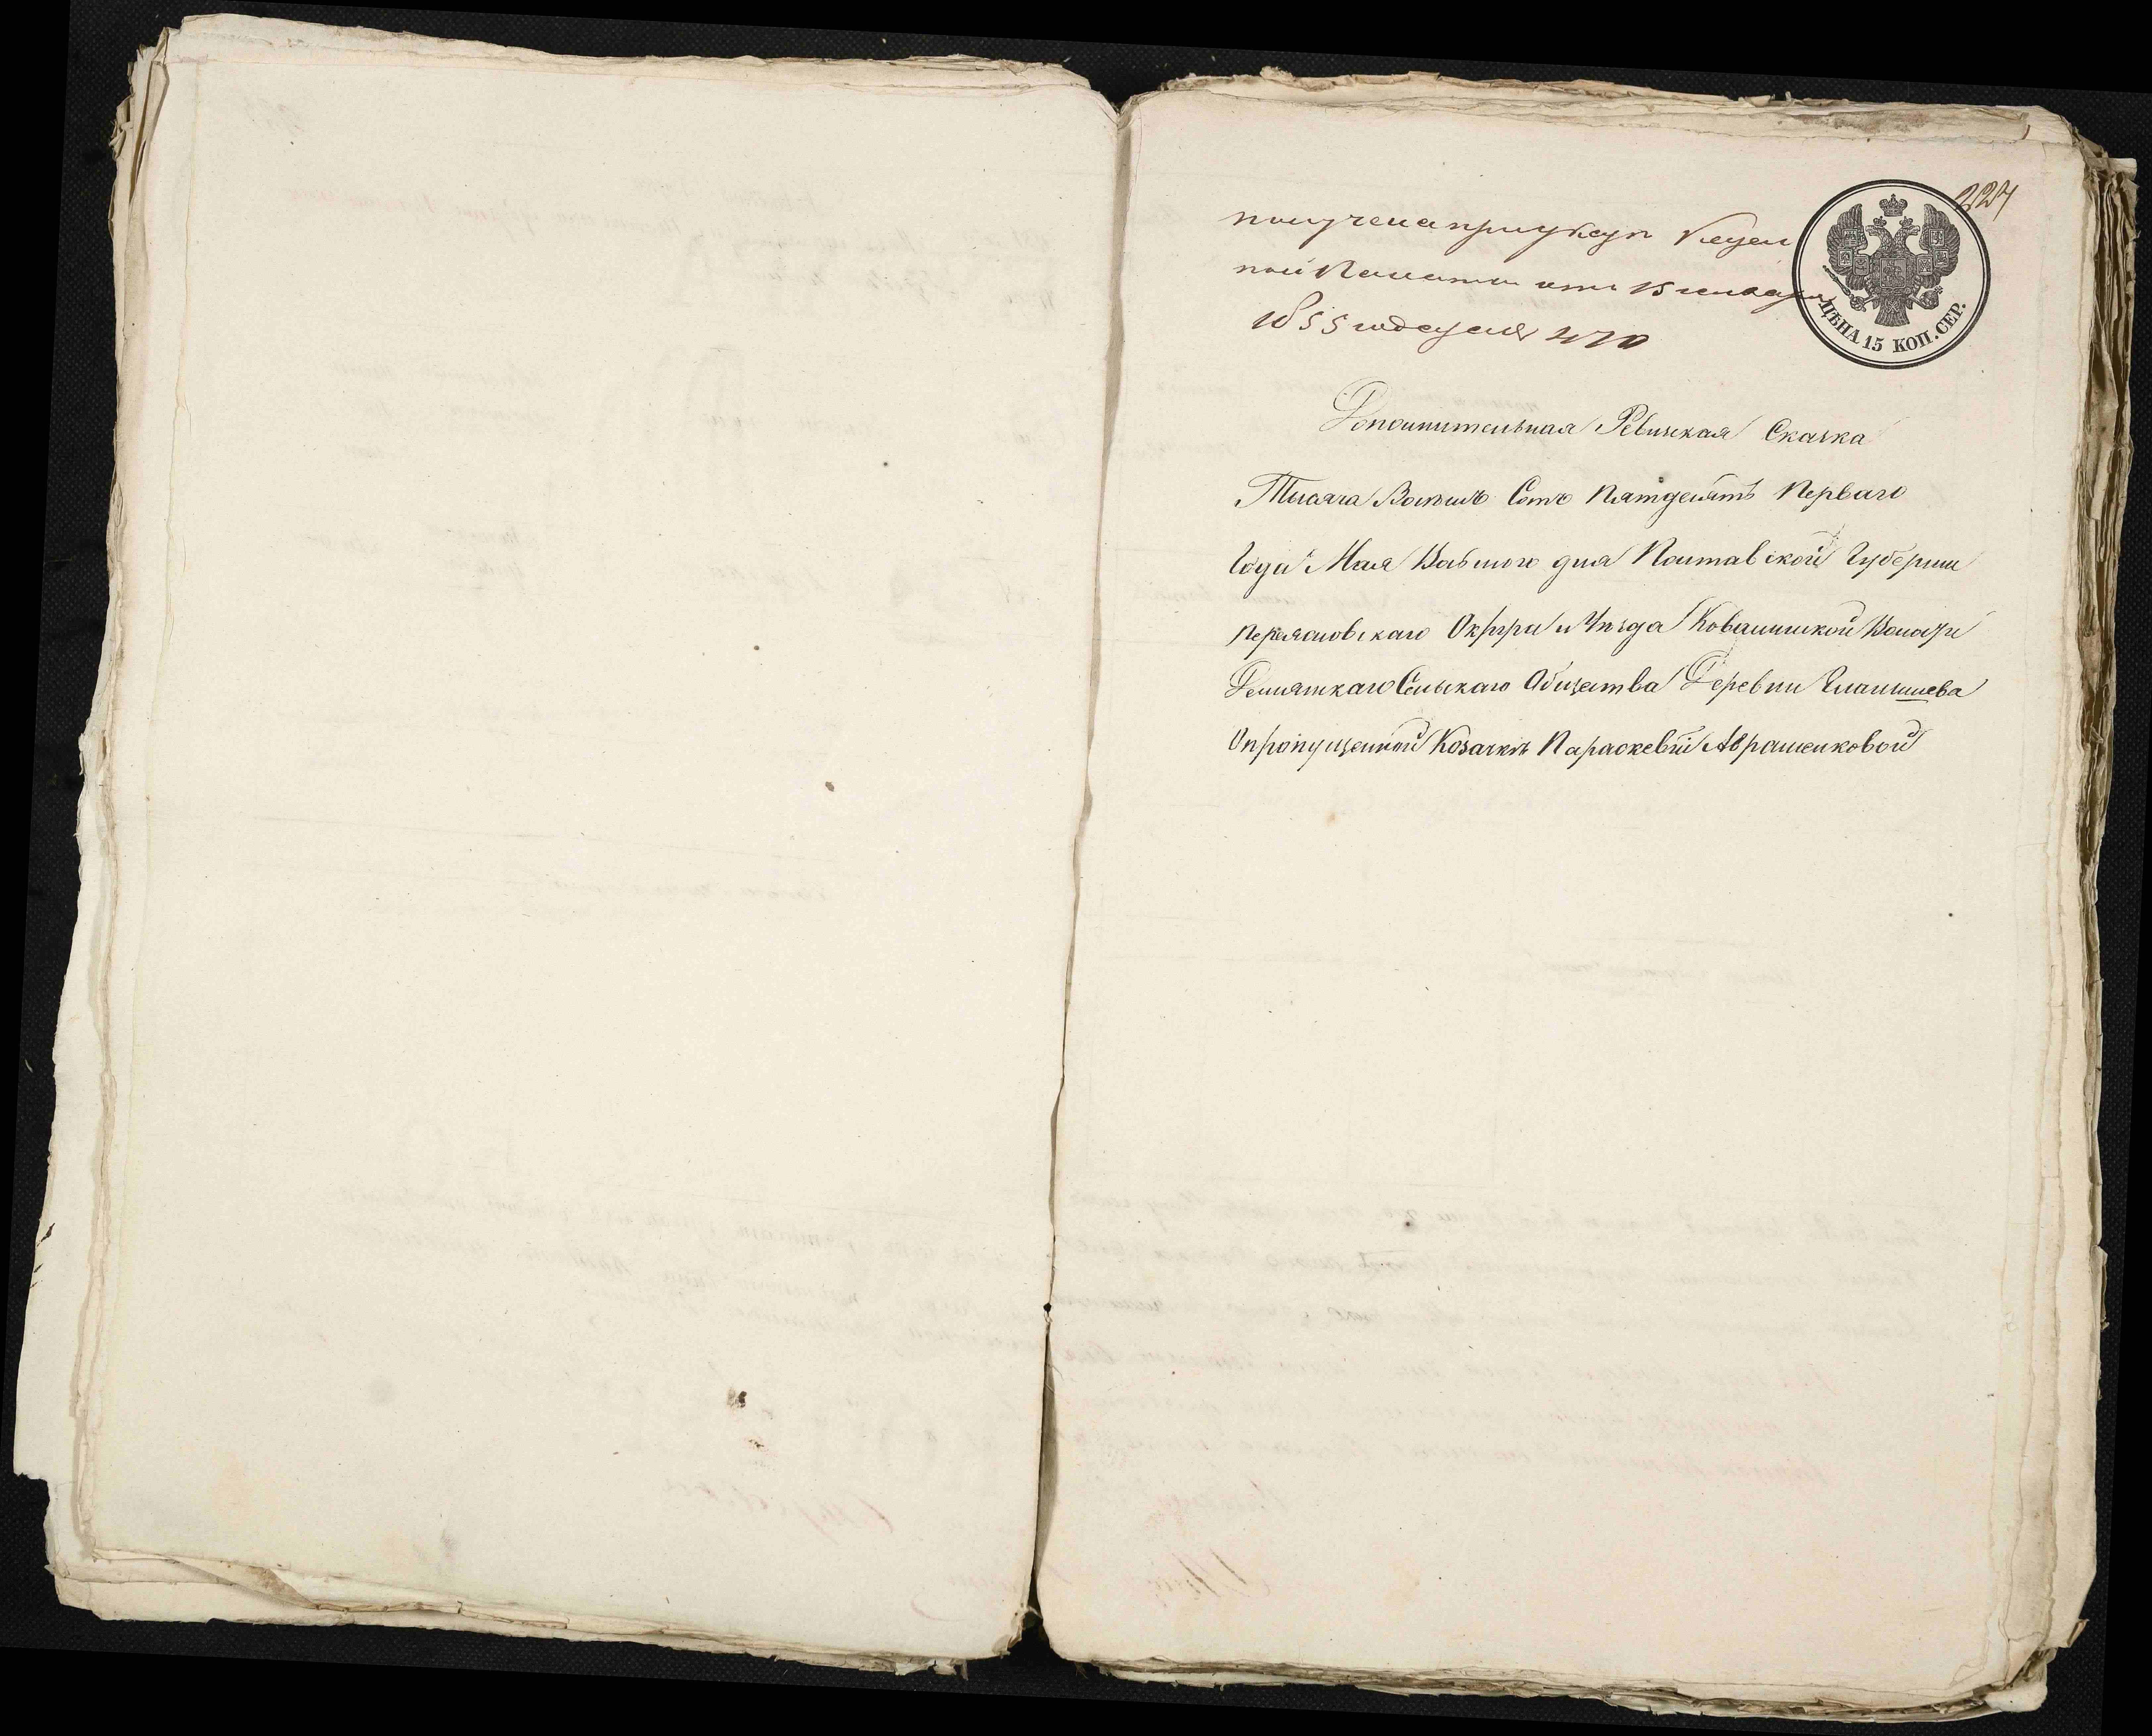 227
получена при указе Казен
ной Палаты отъ 15 января
1855 года за № 470
ЦѢНА 15 КОП. СЕР.
Дополнительная Ревизская Сказка
Тысяча Восемь Сотъ Пятдесятъ Перваго
Года Мая Восьмого дня Полтавской Губерніи
Переясловскаго Округа и Уезда Ковалинской Волости
Демянскаго Сельскаго Общества Деревни
О пропущенной Козачкѣ Параскевіи Авраменковой